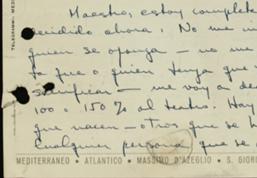 Maestro, estoy complete
decidido ahora. No me im
quien se oponga — no me
ta que o quien tenga que
sacrificar — me voy a de
100 o 150% al teatro. Hay
que nacen — otros que se h
Cualquier persona que se
MEDITERRANEO • ATLANTICO • MASSIMO D'AZEGLIO • S. GIOR